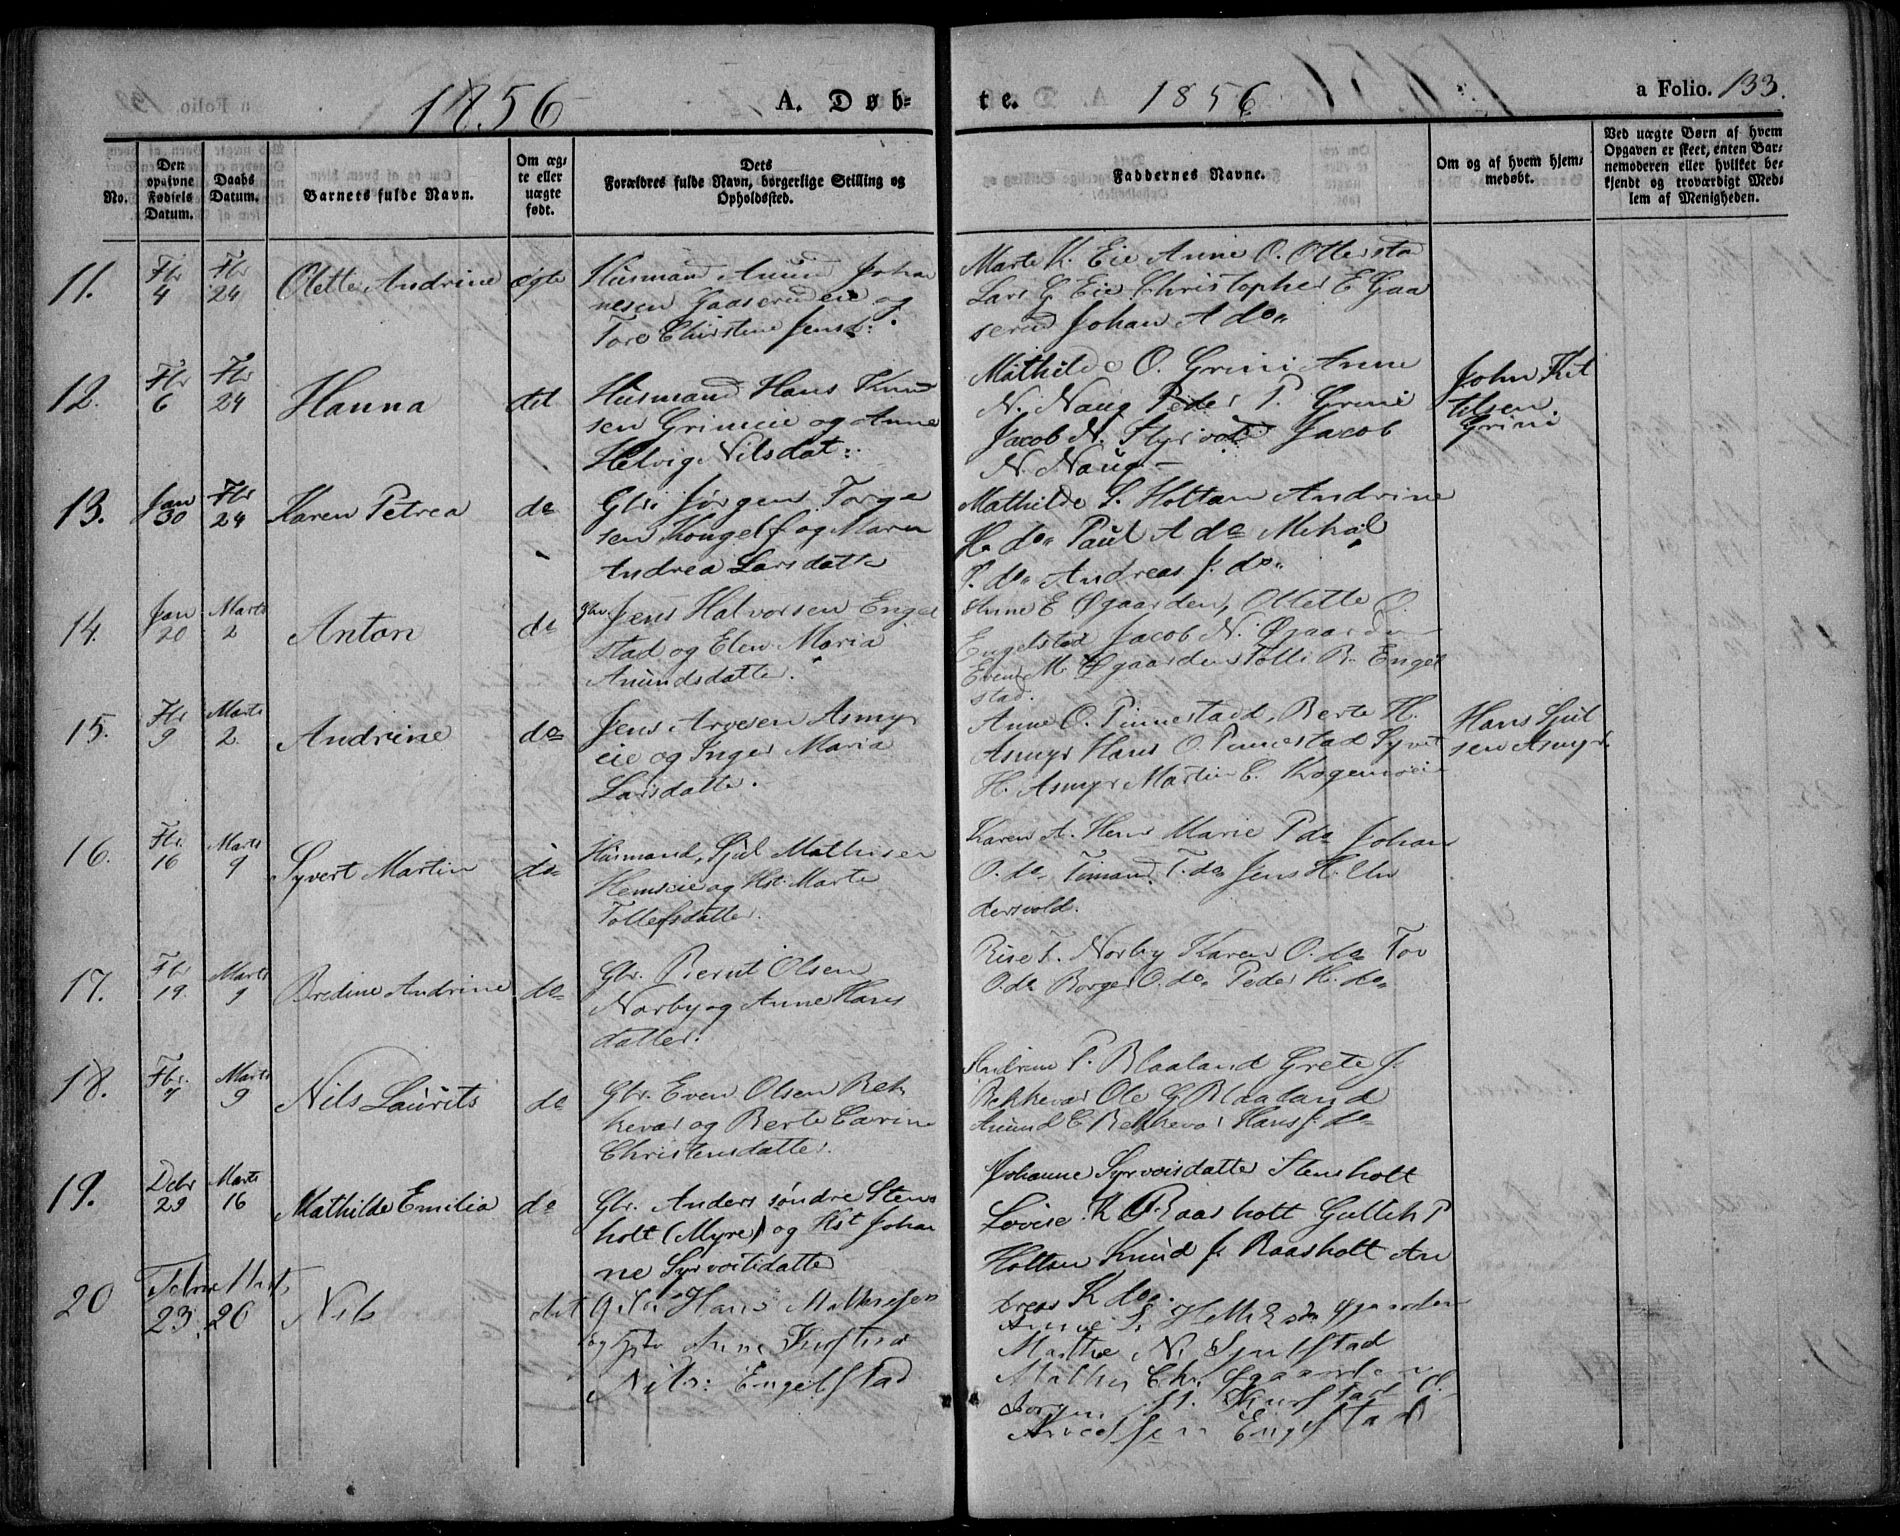 1856 A. Døb- te. 1856 a Folio. 133.
No.
Den opgivne Fødsels Datum.
Daabs Datum.
Barnets fulde Navn.
Om ægte eller uægte født.
Dets Forældres fulde Navn, borgerlige Stilling og Opholdssted.
Faddernes Navne.
Om og af hvem hjemmedøbt.
Ved uægte Børn af hvem Opgaven er skeet, enten Barnemoderen eller hvilket bekjendt og troværdigt Medlem af Menigheden.
11. Fbr 4 Fbr 24 Olette Andrine ægte
Husmand Anund Johan
nesen Gaaserudeie og
Tore Christine Jensd:
Marte K. Eie Anne O. Ottersta
Lars G Eie Christopher E Gaa
serud Johan A do
12. Fbr 6 Fbr 24 Hanna det
Husmand Hans Knud
sen Grinieie og Anne
Helvig Nilsdat:
Mathilde O. Grini Anne
N. Naug Peder P. Grini
Jacob N. Jacob
N. Naug
John Kit
telsen
Grini
13. Jan 30 Fbr 24 Karen Petrea do
Gbr. Jørgen Torge
sen Kongelf og Maren
Andrea Larsdatte
Mathilde S. Holtan Andrine
H. do Paul A do Mikal
P. do Andreas J. do
14. Jan 20 Marts 2 Anton do
Gbr. Jens Halvorsen Engel
stad og Elen Maria
Anundsdatte.
Anne E Øgaarden, Olette O.
Engelstad Jacob N. Øgaarden
Even M. Øgaarden Tolli R. Engel
stad.
15. Fbr 9 Marts 2. Andrine do
Jens Arvesen Asmyr
eie og Inger Maria
Larsdatte.
Anne O. Pinnestad, Berte H.
Asmyr Hans O. Pinnestad Syvert
H. Asmyr Martin C.
Hans Sjul
sen Asmyr.
16. Fbr 16 Marts 9 Syvert Martin do
Husmand, Sjul Mathisen
Hemseie og Hst. Marte
Tollefsdatter.
Karen A. Hem Marie P do Johan
O. do T. do Jens H. Un
dersvold.
17. Fbr 19. Marts 9 Bredine Andrine do
Gbr. Bernt Olsen
Norby og Anne Hans
datter.
T. Norby Karen O. do Tov
O. do Borger O. do Peder H. do
18. Fbr. 7 Marts 9 Nils Laurits do
Gbr. Even Olsen Bek
kevar og Berte Carine
Christensdatter.
Andrine P. Blaaland Grete J.
Bekkevar Ole G Blaaland
Anund E Bekkevar Hans J. do
19. Debr 29 Marts 16 Mathilde Emilia do
Gbr. Anders søndre Stens
holt (Myre) og Hst Johan
ne Syrvoitsdatte
Johanne Syrvoisdatte Stensholt
Lovise K Raasholt Gullik P
Holtan Knud J. Raasholt An
dreas K do
20 Febru 23 Marts 26 Nils det
Hans Mathessen
og Anne
Nils: Engelstad
Anne S. Øgaarden
Marthe N. Sjulstad
Mathis Chr. Øgaarden
Jørgen
Engelstad